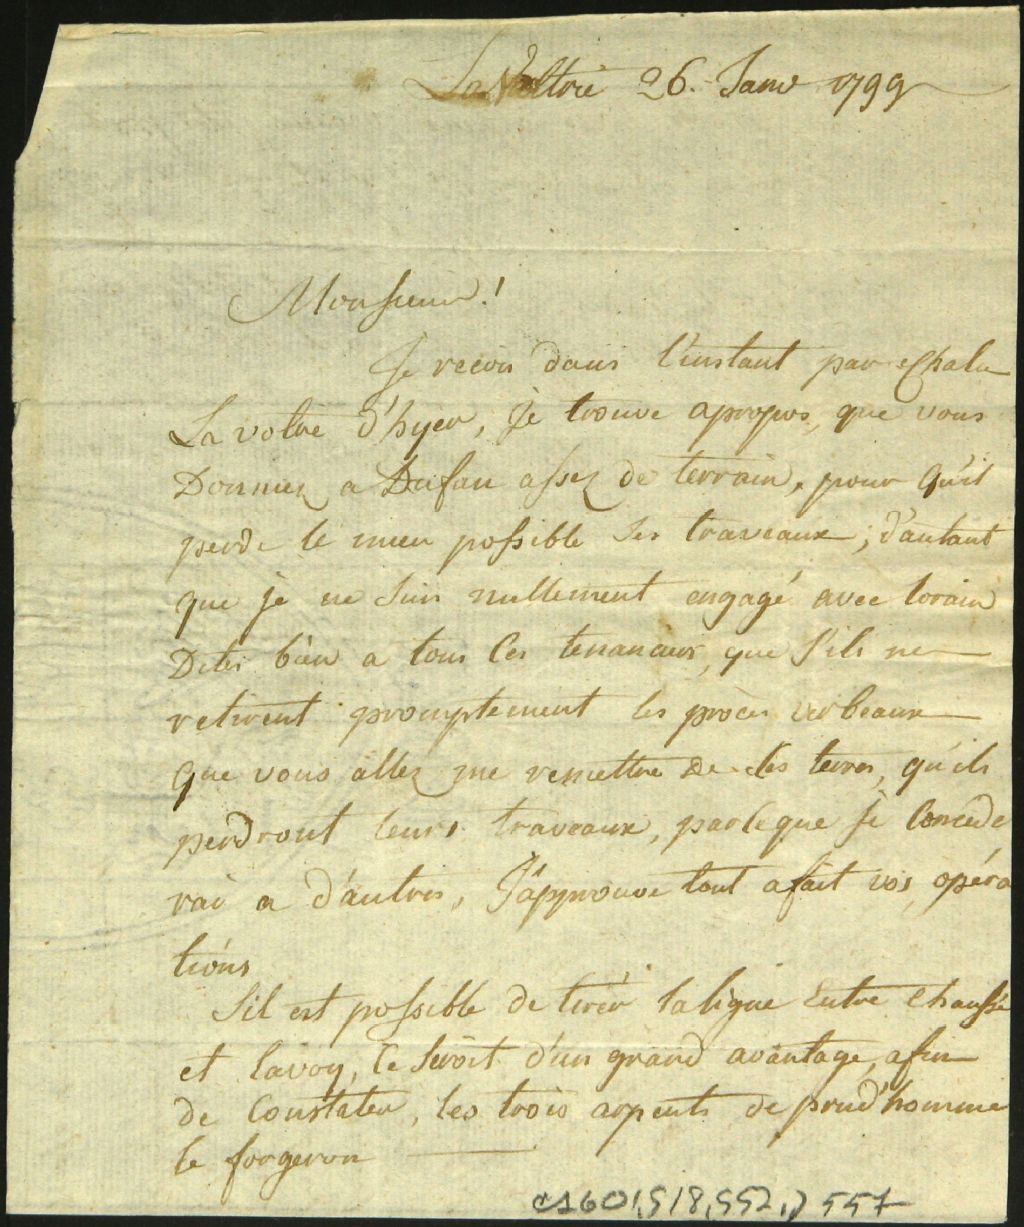 LaValtrie 26. Janv 1799
Monsieur!
Je recois dans l'instant par
La votre d'hyer, Je trouve apropos, que vous
Donniez a Dufau assez de terrain, pour qu'il
perde le mien possible Ses traveaux; d'autant
que je ne Suis nullement engagé avec lorain
Dites bien a tous les tenanciers, que S'ils ne
retirent promptement les procès verbeaux
Que vous allez me remettre De les terres, qu'ils
perdront leurs traveaux, parceque je Concede
rai a d'autres, J'approuve tout afait vos opéra
tions
S'il est possible de tirér la ligne Entre Chaussé
et Lavoy, Ce Seroit d'un grand avantage, afin
de Constater, les trois arpents de prud'homme
le forgeron
CA601,S18,SS2,D557